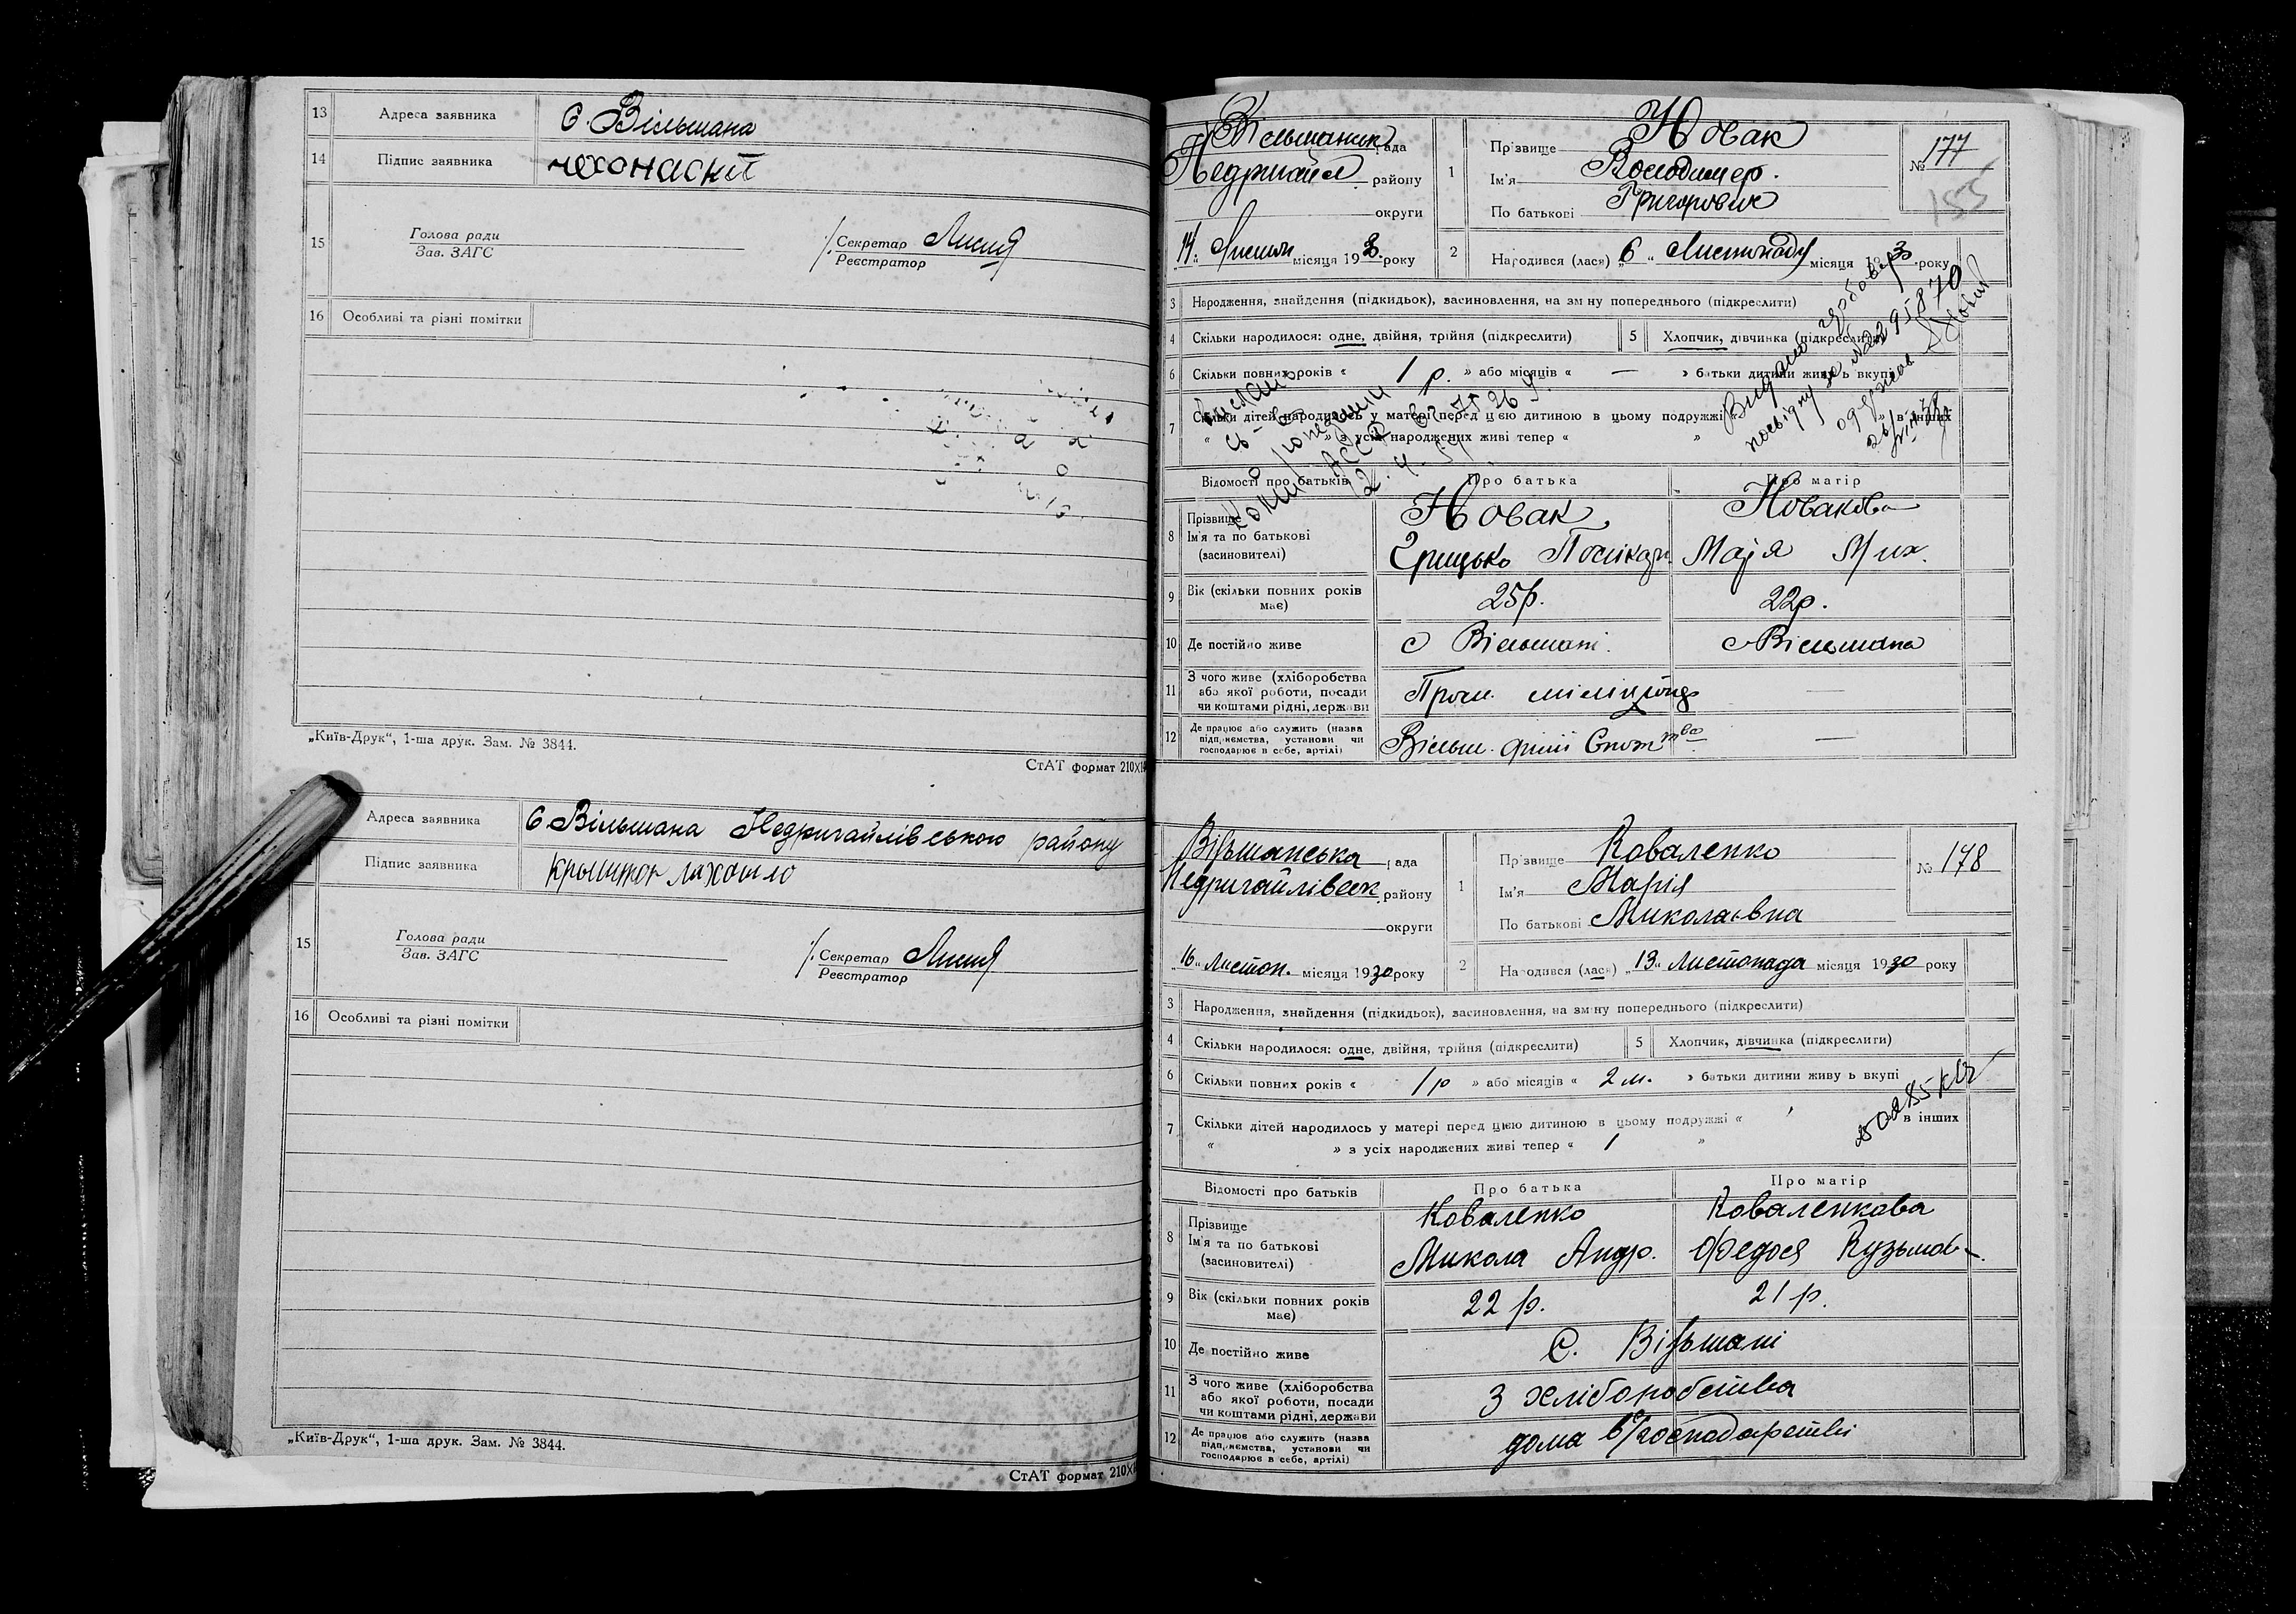 13 Адреса заявника с. Вільшана
14 Підпис заявника
15 Голова ради
Зав. ЗАГС
Секретар
Реєстратор
16 Особливі та різні помітки
„Київ-Друк“, 1-ша друк. Зам. № 3844.
СтАТ формат 210Х
Адреса заявника с. Вільшана Недригайлівського району
Підпис заявника
15 Голова ради
Зав. ЗАГС
Секретар
Реєстратор
16 Особливі та різні помітки
„Київ-Друк“, 1-ша друк. Зам. № 3844.
СтАТ формат 210Х
рада
району
округи
14 місяця 193 року
1 Прізвище Новак
Ім'я Володимер
По батькові Григорович
№ 177
155
2 Народився (лася) „6“ Листопаду місяця 193 року
3 Народження, знайдення (підкидьок), засиновлення, на зміну попереднього (підкреслити)
4 Скільки народилося: одне, двійня, трійня (підкреслити) 5 Хлопчик, дівчинка (підкреслити)
6 Скільки повних років « 1 р. » або місяців « — » батьки дитини живуть вкупі
7 Скільки дітей народилось у матері перед цією дитиною в цьому подружжі « » в інших
« » з усіх народжених живі тепер « »
Відомості про батьків Про батька Про матір
8 Прізвище Новак Новакова
Ім'я та по батькові Грицько Марія Мих.
(засновителі)
9 Вік (скільки повних років має) 25р. 22р.
10 Де постійно живе с Вільшані с Вільшана
11 З чого живе (хліборобства
або якої роботи, посади
чи коштами рідні, держави —
12 Де працює або служить (назва
підприємства, установи чи
господарює в себе, артілі) —
Вільшанська рада
Недригайлівськ району
округи
„16“ Листоп. місяця 1930 року
1 Прізвище Коваленко
Ім'я Марія
По батькові Миколаєвна
№ 178
2 Народився (лася) „13“ Листопада місяця 1930 року
3 Народження, знайдення (підкидьок), засиновлення, на зміну попереднього (підкреслити)
4 Скільки народилося: одне, двійня, трійня (підкреслити) 5 Хлопчик, дівчинка (підкреслити)
6 Скільки повних років « 1 р » або місяців « 2 м. » батьки дитини живуть вкупі
7 Скільки дітей народилось у матері перед цією дитиною в цьому подружжі « » в інших
« » з усіх народжених живі тепер « 1 »
Відомості про батьків Про батька Про матір
8 Прізвище Коваленко Коваленкова
Ім'я та по батькові Микола Андр. Федося Кузьмов
(засиновителі)
9 Вік (скільки повних років має) 22 р. 21 р.
10 Де постійно живе С. Вільшані
11 З чого живе (хліборобства
або якої роботи, посади
чи коштами рідні, держави З хліборобства
12 Де працює або служить (назва
підприємства, установи чи
господарює в себе, артілі) дома в господарстві